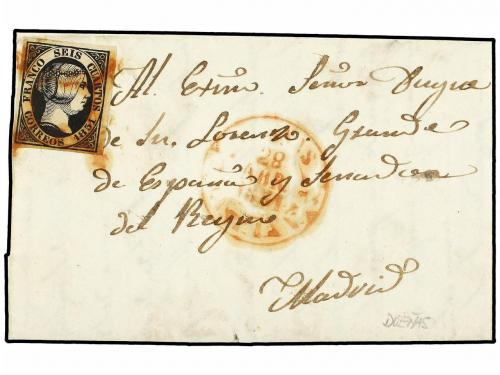 FRANCO SEIS CUARTOS
CORREOS 1851
Al Exmo. Señor Duque
de Sn. Lorenzo Grande
de España y Senador
del Reyno
Madrid
28
DUEÑAS